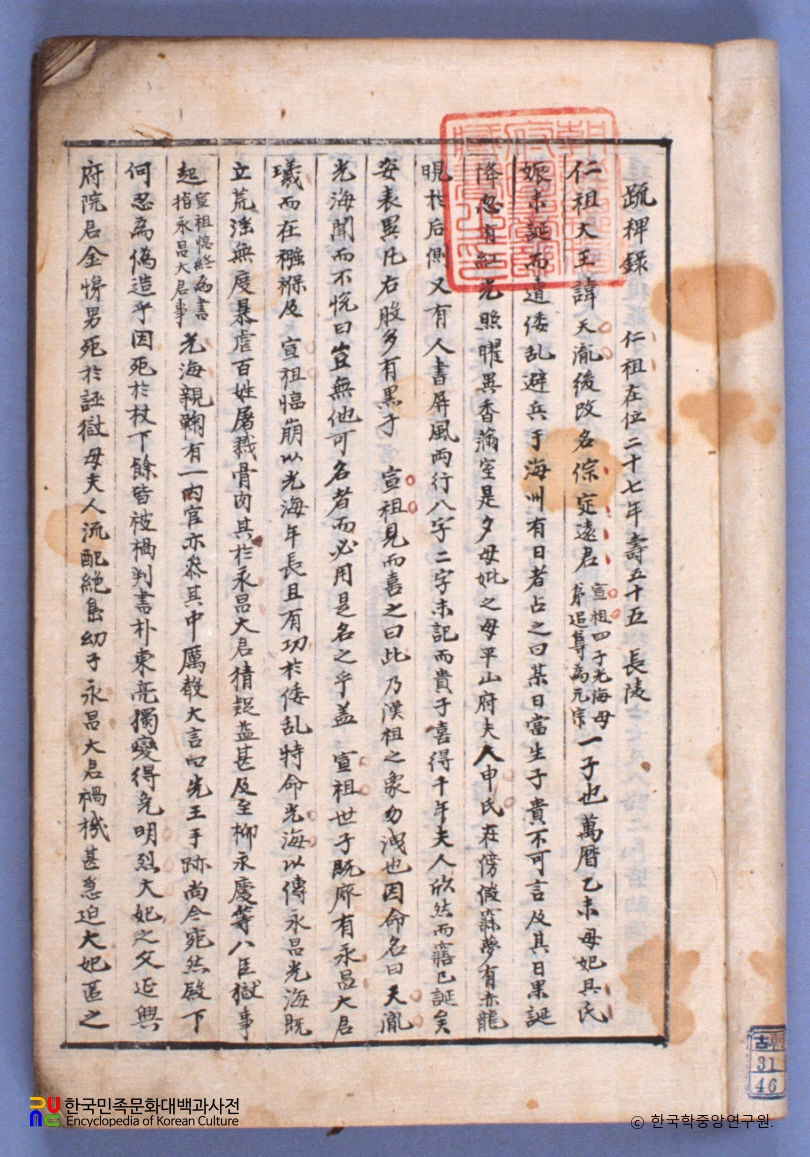 疏稗錄 仁祖在位二十七年壽五十五 長陵
仁祖大王諱天胤後改名倧定遠君宣祖四子光海母弟追尊為元宗一子也萬曆乙未母妃具氏
娠未誕而遭倭乱避兵于海州有日者占之曰某日當生子貴不可言及其日果誕
降忽有紅光照曜異香滿室是夕母妣之母平山府夫人申氏在傍假寐夢有赤龍
現於后側又有人書屏風両行八字二字未記而貴子喜得千年夫人欣然而寤已誕矣
姿表異凡右股多有黑子 宣祖見而喜之曰此乃漢祖之象勿洩也因命名曰天胤
光海聞而不悅曰豈無他可名者而必用是名之乎盖 宣祖世子既廢有永昌大君
㼁而在襁褓及 宣祖恓崩以光海年長且有功於倭乱特命光海以傳永昌光海既
立荒滛無度暴虐百姓屠戮骨肉其於永昌大君猜疑益甚及至柳永慶等八臣獄事
起宣祖憶終為書指永昌大君事光海親鞠有一內官亦叅其中厲聲大言曰先王手跡尚今宛然殿下
何忍為偽造乎因死於杖下餘皆被禍判書朴東亮獨變得免明烈大妃之父延興
府院君金悌男死於誣獄母夫人流配絶島幼子永昌大君禍機甚急迫大妃匿之
古 朝
31
46
한국민족문화대백과사전
Encyclopedia of Korean Culture
© 한국학중앙연구원.